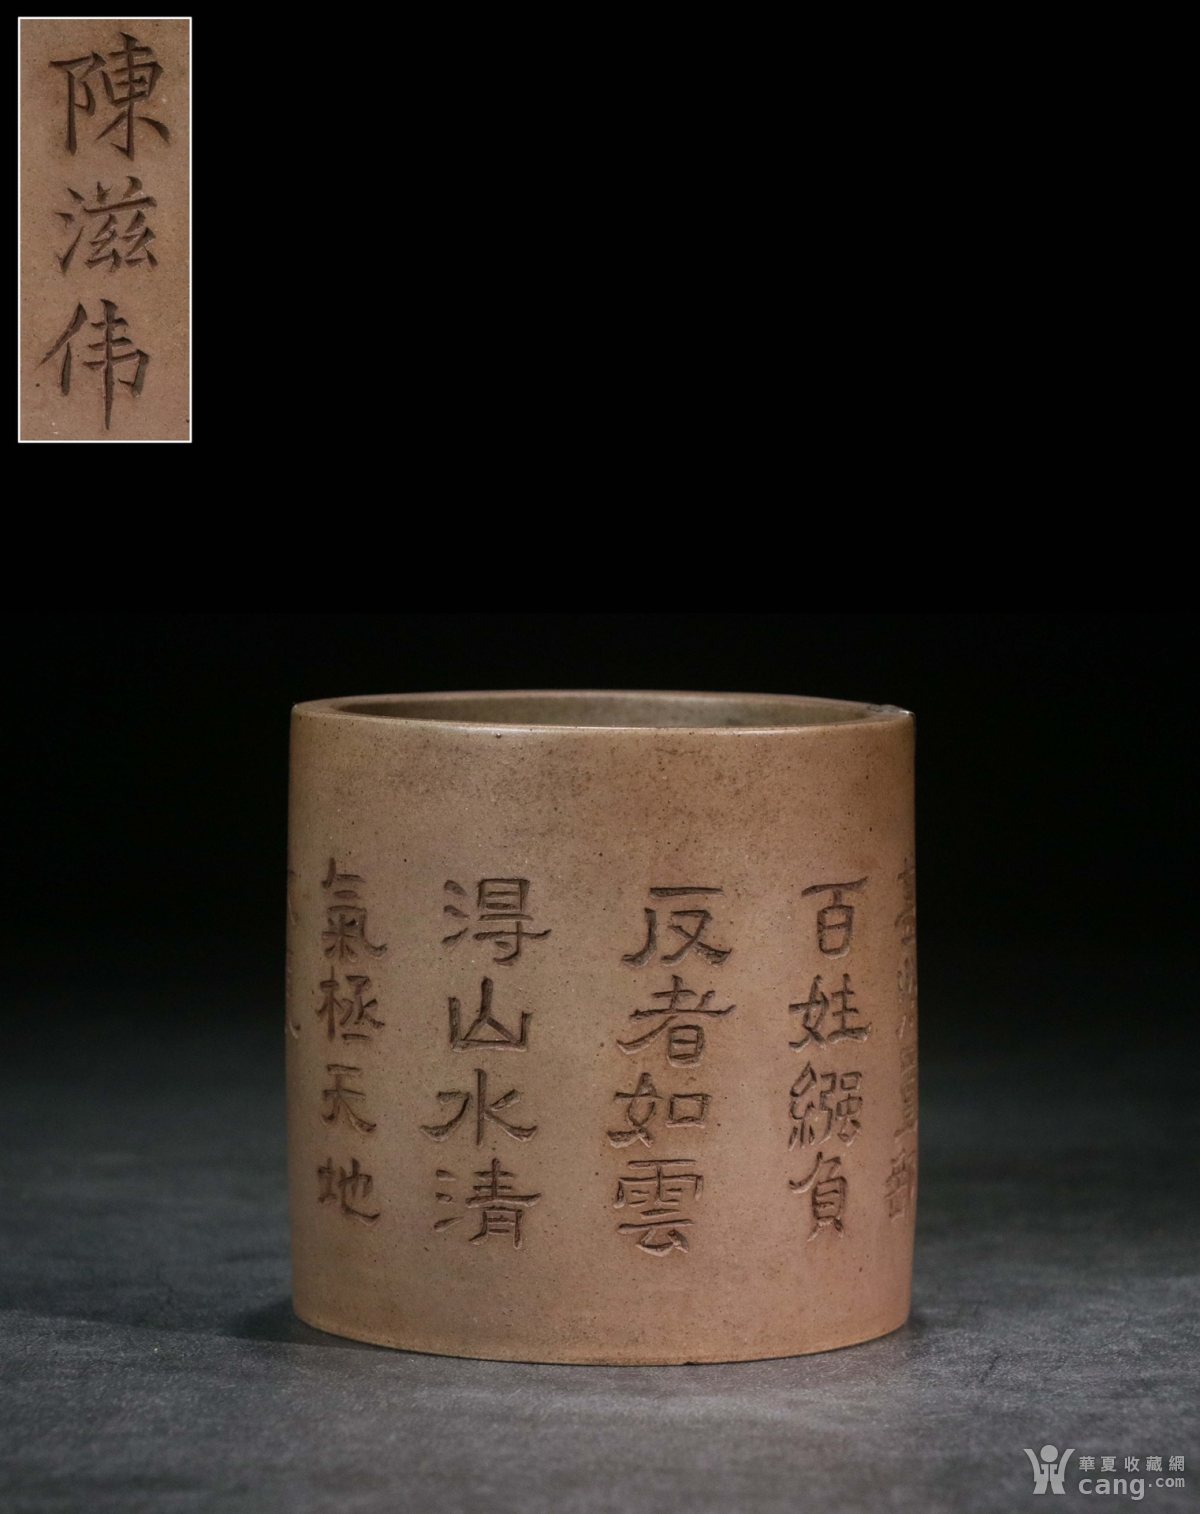 陳滋伟
百姓繈負
反者如雲
淂山水清
氣極天地
華夏收藏網
cang.com